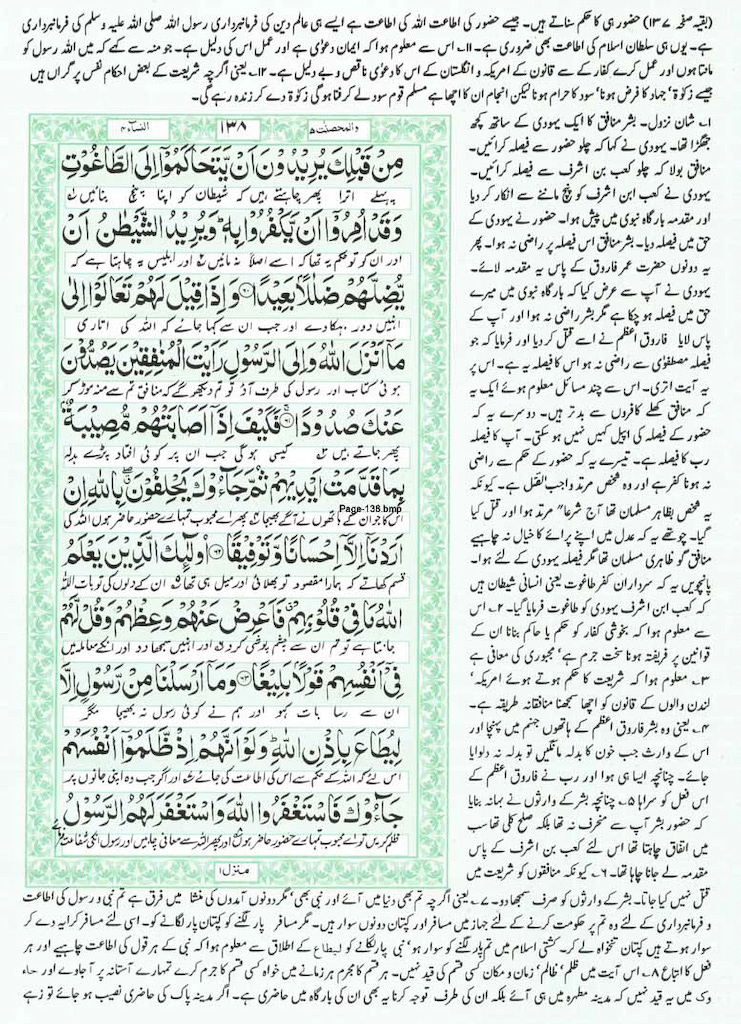 (بقیہ صفحہ ۱۳۷) حضور ہی کا حکم سناتے ہیں۔ جیسے حضور کی اطاعت اللہ کی اطاعت ہے ایسے ہی عالم دین کی فرمانبرداری رسول اللہ صلی اللہ علیہ وسلم کی فرمانبرداری
ہے۔ یوں ہی سلطان اسلام کی اطاعت بھی ضروری ہے۔ ۱۱۔ اس سے معلوم ہوا کہ ایمان دعوٰی ہے اور عمل اس کی دلیل ہے۔ جو منہ سے کہے کہ میں اللہ رسول کو
مانتا ہوں اور عمل کرے کفار کے سے قانون کے امریکہ و انگلستان کے اس کا دعوٰی ناقص و بے دلیل ہے۔ ۱۲۔ یعنی اگرچہ شریعت کے بعض احکام نفس پر گراں ہیں
جیسے زکوٰۃ' جہاد کا فرض ہونا' سود کا حرام ہونا لیکن انجام ان کا اچھا ہے مسلم قوم سود لے کر فنا ہو گی زکوٰۃ دے کر زندہ رہے گی۔
والمحصنت ۵
۱۳۸
النساء ۴
مِنْ قَبْلِكَ يُرِيْدُوْنَ اَنْ يَّتَحَاكَمُوْۤا اِلَى الطَّاغُوْتِ
پہلے اترا پھر چاہتے ہیں کہ شیطان کو اپنا پنچ بنائیں
وَقَدْ اُمِرُوْۤا اَنْ يَّكْفُرُوْا بِهٖ ؕ وَيُرِيْدُ الشَّيْطٰنُ اَنْ
اور ان کو تو حکم یہ تھا کہ اسے اصلاً نہ مانیں اور ابلیس یہ چاہتا ہے کہ
يُّضِلَّهُمْ ضَلٰلًۢا بَعِيْدًا ۶۰ وَاِذَا قِيْلَ لَهُمْ تَعَالَوْا اِلٰى
انہیں دور بہکا دے اور جب ان سے کہا جائے کہ اللہ کی اتاری
مَاۤ اَنْزَلَ اللّٰهُ وَاِلَى الرَّسُوْلِ رَاَيْتَ الْمُنٰفِقِيْنَ يَصُدُّوْنَ
ہوئی کتاب اور رسول کی طرف آؤ تو تم دیکھو گے کہ منافق تم سے منہ موڑ کر
عَنْكَ صُدُوْدًا ۶۱ فَكَيْفَ اِذَاۤ اَصَابَتْهُمْ مُّصِيْبَةٌۢ
پھر جاتے ہیں کیسی ہو گی جب ان پر کوئی افتاد پڑے بدلہ
بِمَا قَدَّمَتْ اَيْدِيْهِمْ ثُمَّ جَآءُوْكَ يَحْلِفُوْنَ بِاللّٰهِ اِنْ
Page-138.bmp
اس کا جو ان کے ہاتھوں نے آگے بھیجا پھر اے محبوب تمہارے حضور حاضر ہوں اللہ کی
اَرَدْنَاۤ اِلَّاۤ اِحْسَانًا وَّتَوْفِيْقًا ۶۲ اُولٰٓئِكَ الَّذِيْنَ يَعْلَمُ
قسم کھاتے کہ ہمارا مقصود تو بھلائی اور میل ہی تھا ان کے دلوں کی تو بات اللہ
اللّٰهُ مَا فِيْ قُلُوْبِهِمْ فَاَعْرِضْ عَنْهُمْ وَعِظْهُمْ وَقُلْ لَّهُمْ
جانتا ہے تو تم ان سے چشم پوشی کرو اور انہیں سمجھا دو اور انکے معاملہ میں
فِيْۤ اَنْفُسِهِمْ قَوْلًۢا بَلِيْغًا ۶۳ وَمَاۤ اَرْسَلْنَا مِنْ رَّسُوْلٍ اِلَّا
ان سے رسا بات کہو اور ہم نے کوئی رسول نہ بھیجا مگر
لِيُطَاعَ بِاِذْنِ اللّٰهِ ؕ وَلَوْ اَنَّهُمْ اِذْ ظَّلَمُوْۤا اَنْفُسَهُمْ
اس لئے کہ اللہ کے حکم سے اس کی اطاعت کی جائے اور اگر جب وہ اپنی جانوں پر
جَآءُوْكَ فَاسْتَغْفَرُوا اللّٰهَ وَاسْتَغْفَرَ لَهُمُ الرَّسُوْلُ
ظلم کریں تو اے محبوب تمہارے حضور حاضر ہوں اور پھر اللہ سے معافی چاہیں اور رسول انکی شفاعت
منزل ۱
۱۔ شان نزول۔ بشر منافق کا ایک یہودی کے ساتھ کچھ
جھگڑا تھا۔ یہودی نے کہا کہ چلو حضور سے فیصلہ کرائیں۔
منافق بولا کہ چلو کعب بن اشرف سے فیصلہ کرائیں۔
یہودی نے کعب ابن اشرف کو پنچ ماننے سے انکار کر دیا
اور مقدمہ بارگاہ نبوی میں پیش ہوا۔ حضور نے یہودی کے
حق میں فیصلہ دیا۔ بشر منافق اس فیصلہ پر راضی نہ ہوا۔ پھر
یہ دونوں حضرت عمر فاروق کے پاس یہ مقدمہ لائے۔
یہودی نے آپ سے عرض کیا کہ بارگاہ نبوی میں میرے
حق میں فیصلہ ہو چکا ہے مگر بشر راضی نہ ہوا اور آپ کے
پاس لایا فاروق اعظم نے اسے قتل کر دیا اور فرمایا کہ جو
فیصلہ مصطفوٰی سے راضی نہ ہو اس کا فیصلہ یہ ہے۔ اس پر
یہ آیت اتری۔ اس سے چند مسائل معلوم ہوئے ایک یہ
کہ منافق کھلے کافروں سے بد تر ہیں۔ دوسرے یہ کہ
حضور کے فیصلہ کی اپیل کہیں نہیں ہو سکتی۔ آپ کا فیصلہ
رب کا فیصلہ ہے۔ تیسرے یہ کہ حضور کے حکم سے راضی
نہ ہونا کفر ہے اور وہ شخص مرتد واجب القتل ہے۔ کیونکہ
یہ شخص بظاہر مسلمان تھا آج شرعا" مرتد ہوا اور قتل کیا
گیا۔ چوتھے یہ کہ عدل میں اپنے پرائے کا خیال نہ چاہیے
منافق گو ظاہری مسلمان تھا مگر فیصلہ یہودی کے لئے ہوا۔
پانچویں یہ کہ سرداران کفر طاغوت یعنی انسانی شیطان ہیں
کہ کعب ابن اشرف یہودی کو طاغوت فرمایا گیا۔ ۲۔ اس
سے معلوم ہوا کہ بخوشی کفار کو حکم یا حاکم بنانا ان کے
قوانین پر فریفتہ ہونا سخت جرم ہے' مجبوری کی معافی ہے
۳۔ معلوم ہوا کہ شریعت کا حکم ہوتے ہوئے امریکہ'
لندن والوں کے قانون کو اچھا سمجھنا منافقانہ طریقہ ہے۔
۴۔ یعنی وہ بشر فاروق اعظم کے ہاتھوں جہنم میں پہنچا اور
اس کے وارث جب خون کا بدلہ مانگیں تو بدلہ نہ دلوایا
جائے۔ چنانچہ ایسا ہی ہوا اور رب نے فاروق اعظم کے
اس فعل کو سراہا ۵۔ چنانچہ بشر کے وارثوں نے بہانہ بنایا
کہ حضور بشر آپ سے منحرف نہ تھا بلکہ صلح کلی تھا سب
میں اتفاق چاہتا تھا اس لئے کعب بن اشرف کے پاس
مقدمہ لے جانا چاہتا تھا۔ ۶۔ کیونکہ منافقوں کو شریعت میں
قتل نہیں کیا جاتا۔ بشر کے وارثوں کو صرف سمجھا دو۔ ۷۔ یعنی اگرچہ تم بھی دنیا میں آئے اور نبی بھی' مگر دونوں آمدوں کی منشا میں فرق ہے تم نبی و رسول کی اطاعت
و فرمانبرداری کے لئے وہ تم پر حکومت کرنے کے لئے جہاز میں مسافر اور کپتان دونوں سوار ہیں۔ مگر مسافر پار لگنے کو کپتان پار لگانے کو۔ اسی لئے مسافر کرایہ دے کر
سوار ہوتے ہیں کپتان تنخواہ لے کر۔ کشتی اسلام میں تم پار لگنے کو سوار ہو' نبی پار لگانے کو لیطاع کے اطلاق سے معلوم ہوا کہ نبی کے ہر قول کی اطاعت چاہیے اور ہر
فعل کا اتباع ۸۔ اس آیت میں ظلم' ظالم' زمان و مکان کسی قسم کی قید نہیں۔ ہر قسم کا مجرم ہر زمانے میں خواہ کسی قسم کا جرم کرے تمہارے آستانہ پر آ جاوے اور جاء
وک میں یہ قید نہیں کہ مدینہ مطہرہ میں ہی آئے بلکہ ان کی طرف توجہ کرنا یہ بھی ان کی بارگاہ میں حاضری ہے۔ اگر مدینہ پاک کی حاضری نصیب ہو جائے تو زہے